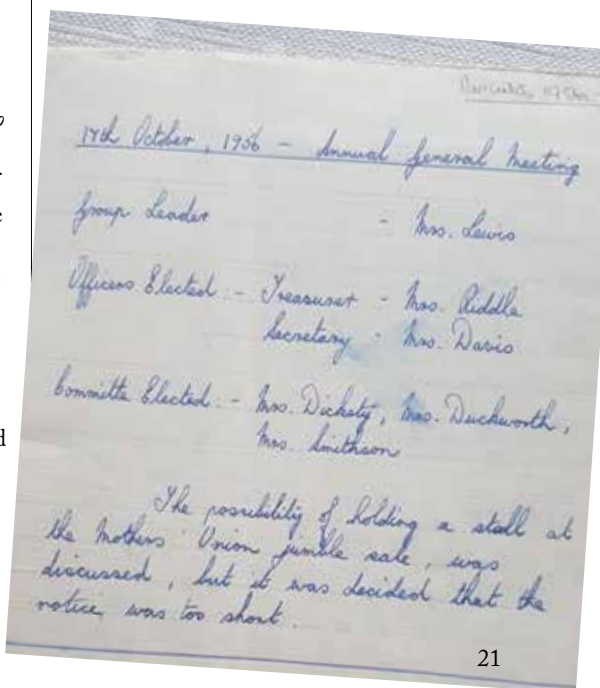 17th October, 1956 - Annual General Meeting
Group Leader - Mrs. Lewis
Officers Elected :- Treasurer - Mrs. Riddle
Secretary - Mrs. Davis
Committe Elected :- Mrs. Dickety, Mrs. Duckworth,
Mrs. Smithson
The possibility of holding a stall at
the Mothers' Union jumble sale, was
discussed, but it was decided that the
notice was too short.
21